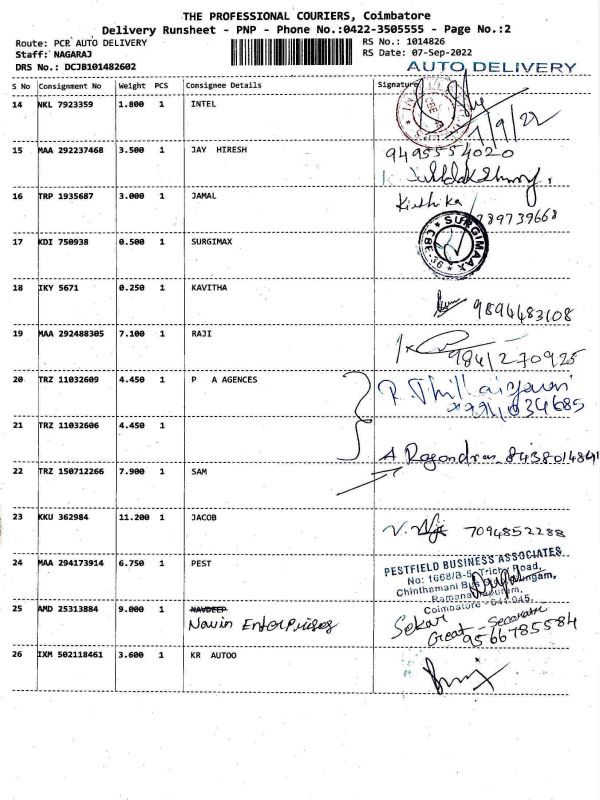 THE PROFESSIONAL COURIERS, Coimbatore
Delivery Runsheet - PNP - Phone No.:0422-3505555 - Page No.:2
Route: PCR AUTO DELIVERY RS No.: 1014826
Staff: NAGARAJ RS Date: 07-Sep-2022
DRS No.: DCJB101482602 AUTO DELIVERY
S No Consignment No Weight PCS Consignee Details Signature
14 NKL 7923359 1.800 1 INTEL
7/9/22
15 MAA 292237468 3.500 1 JAY HIRESH 9495554020
16 TRP 1935687 3.000 1 JAMAL
17 KDI 750938 0.500 1 SURGIMAX
SURGIMAAX
CBE-36
18 IKY 5671 0.250 1 KAVITHA
9894483108
19 MAA 292488305 7.100 1 RAJI
9841270925
20 TRZ 11032609 4.450 1 P A AGENCES
21 TRZ 11032606 4.450 1
8438014841
22 TRZ 150712266 7.900 1 SAM
23 KKU 362984 11.200 1 JACOB
7094852288
24 MAA 294173914 6.750 1 PEST
PESTFIELD BUSINESS ASSOCIATES
No: 1668/B-5, Trichy Road,
Chinthamani Bus
Coimbatore - 641 045.
25 AMD 25313884 9.000 1 NAVDEEP
Navin Enterprises
Sekar
9566785584
26 IXM 502118461 3.600 1 KR AUTOO